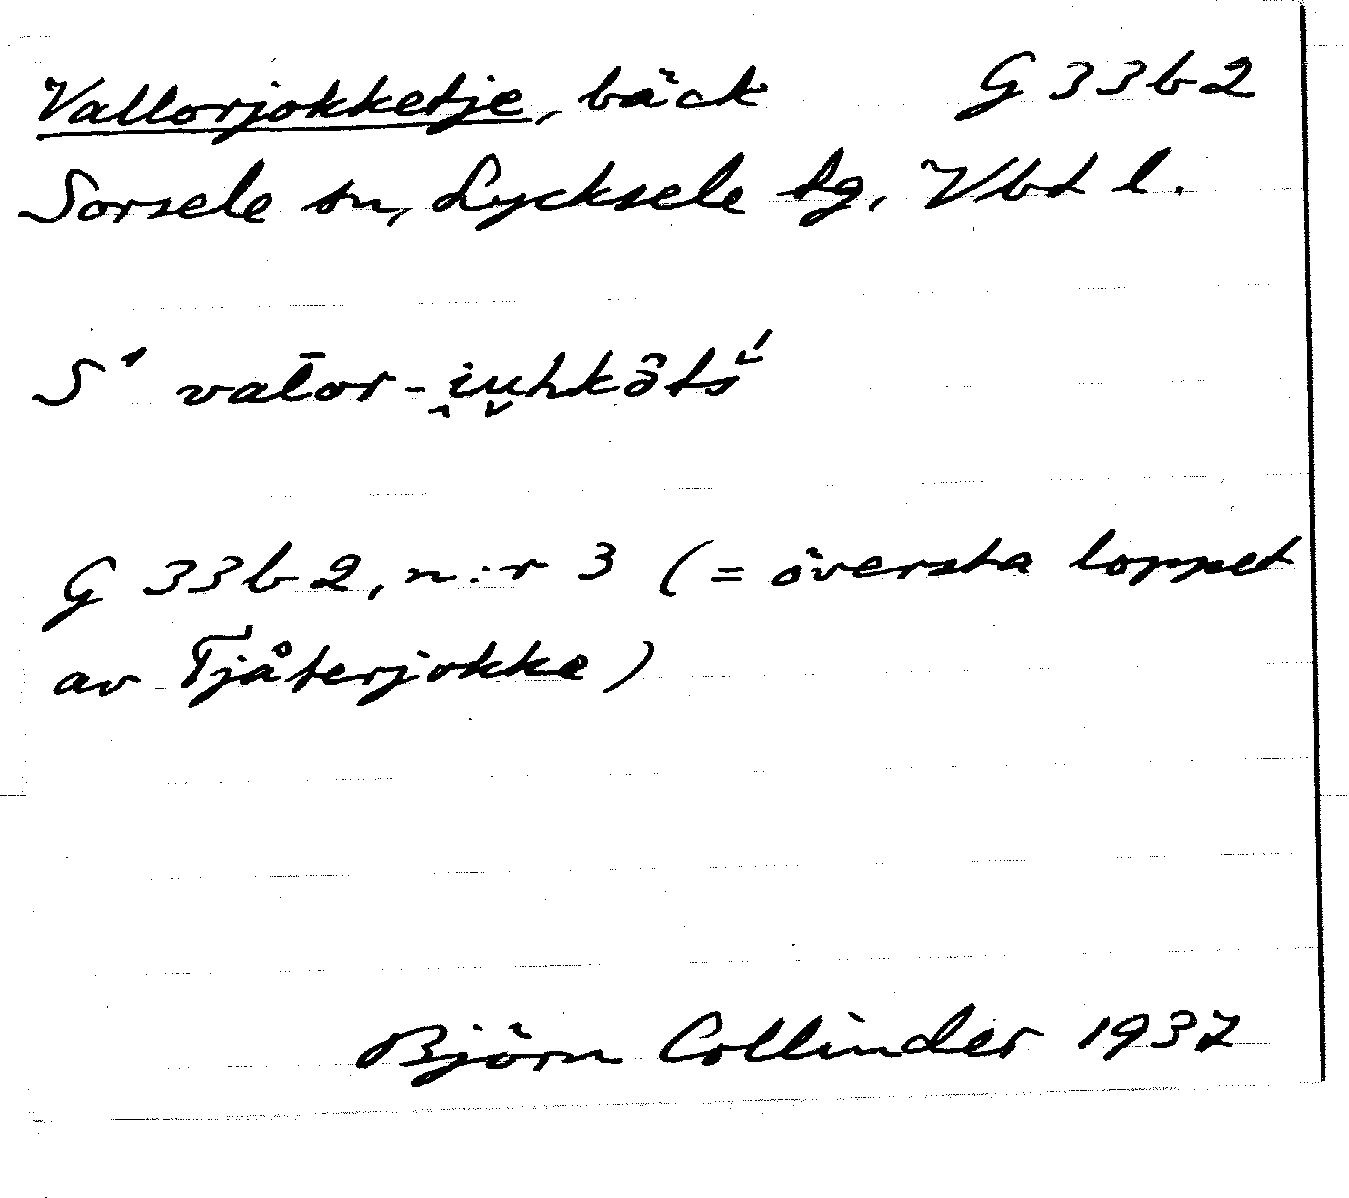 Vallorjokketje, bäck G 33b2
Sorsele sn, Lycksele tg, Vbt l.
S' val̄or-i̭u̬hkə̂tš́
G 33b2, n:r 3 (= översta loppet
av Tjåterjokke)
Björn Collinder 1937